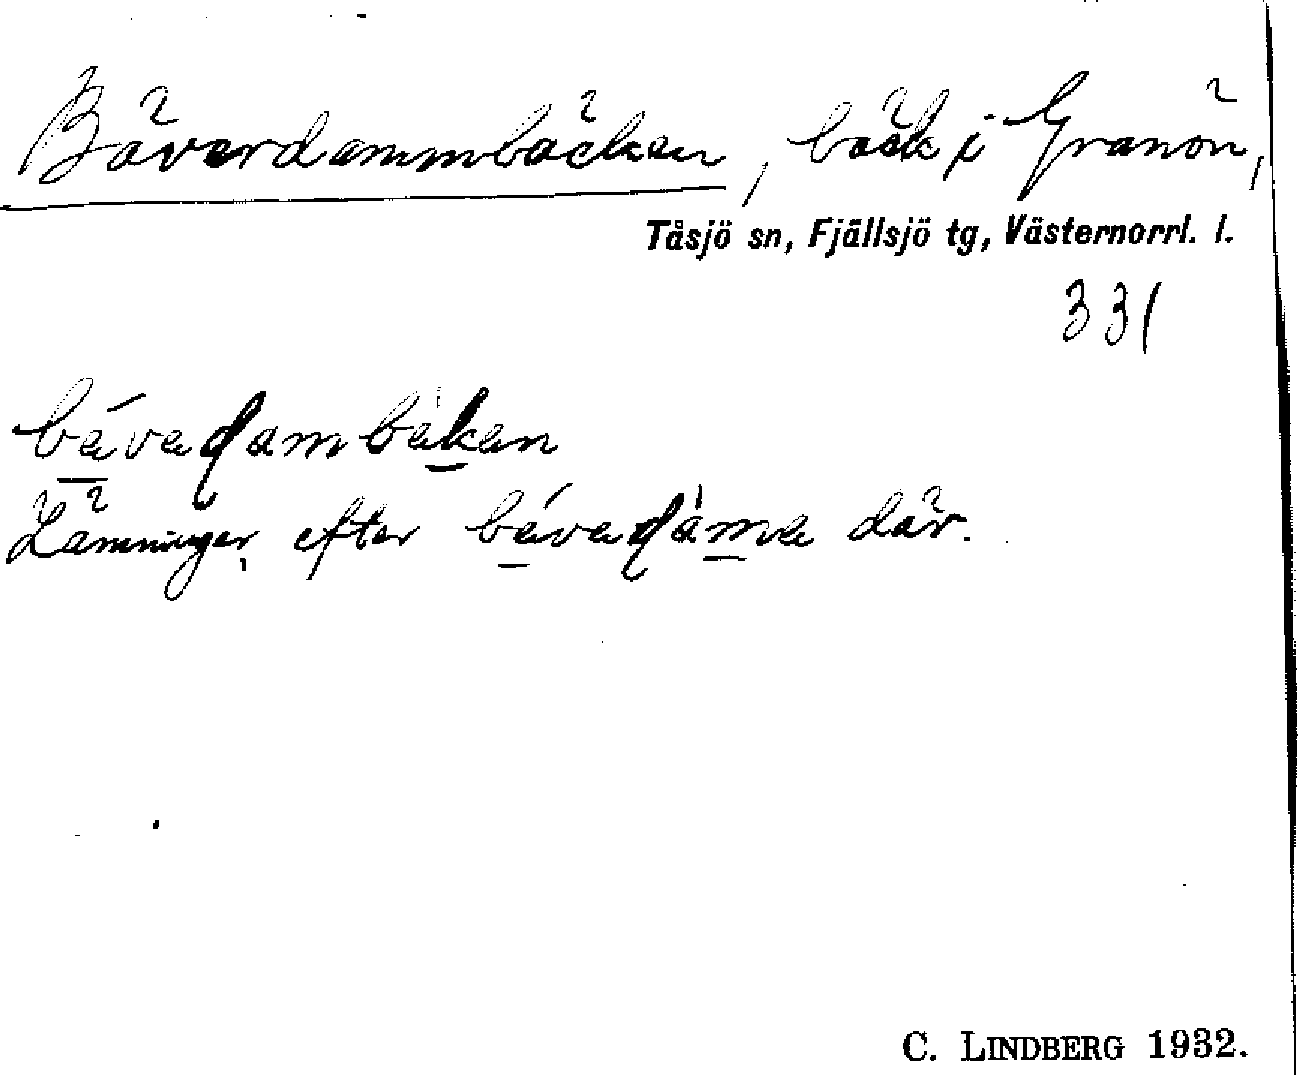 Bäverdammbäcken, bäck i Granön,
Tåsjö sn, Fjällsjö tg, Västernorrl. l.
331
bávaɖambàkan
Lämningar efter bávaɖàma där.
C. LINDBERG 1932.